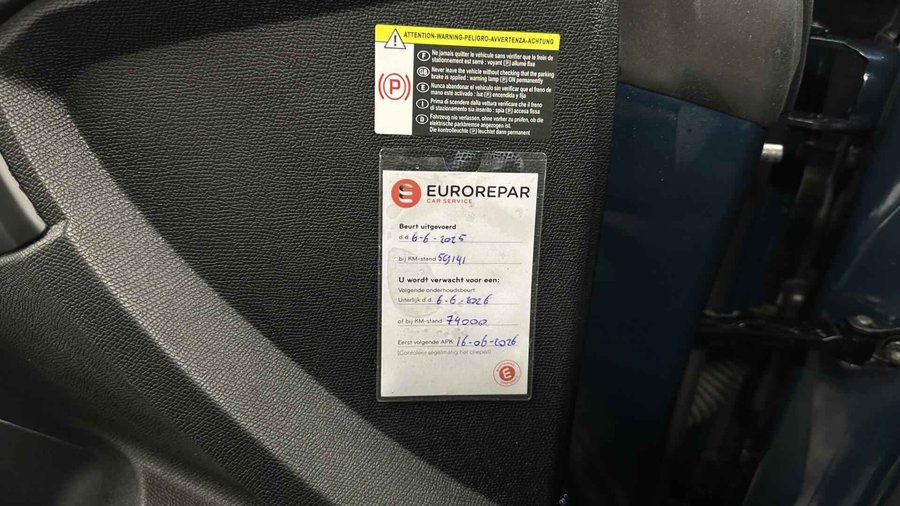 ATTENTION-WARNING-PELIGRO-AVVERTENZA-ACHTUNG
F Ne jamais quitter le véhicule sans vérifier que le frein de
stationnement est serré : voyant (P) allumé fixe
GB Never leave the vehicle without checking that the parking
brake is applied : warning lamp (P) ON permanently
E Nunca abandonar el vehiculo sin verificar que el freno de
mano esté activado : luz (P) encendida y fija
I Prima di scendere dalla vettura verificare che il freno
di stazionamento sia inserito : spia (P) accesa fissa
D Fahrzeug nie verlassen, ohne vorher zu prüfen, ob die
elektrische parkbremse angezogen ist.
Die kontrolleuchte (P) leuchtet dann permanent
(P)
EUROREPAR
CAR SERVICE
Beurt uitgevoerd
d.d 6-6-2025
bij KM-stand 59141
U wordt verwacht voor een:
Volgende onderhoudsbeurt
Uiterlijk d.d. 6-6-2026
of bij KM-stand 74000
Eerst volgende APK 16-06-2026
(Controleer regelmatig het oliepeil)